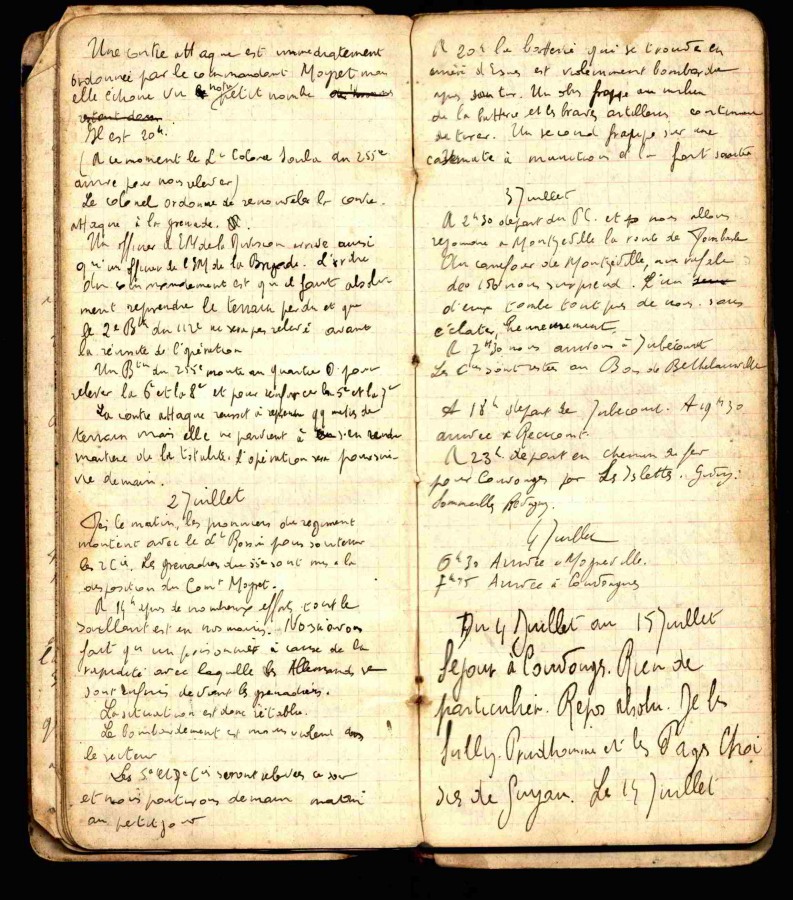 Une contre attaque est immediatement
ordonnée par le commandant Moyret mais
elle échoue vu notre petit nombre

Il est 20h.
(A ce moment le Lt Colonel Soula du 255e
arrive pour nous relever)
Le colonel ordonne de renouveler la contre
attaque à la grenade.
Un officier d'EM de la Division arrive ainsi
qu'un officier de l'EM de la Brigade. L'ordre
du commandement est qu'il faut absolu-
ment reprendre le terrain perdu et que
le 2e Bon du 112e ne sera pas relevé avant
la réussite de l'opération
Un Bon du 255e monte au quartier O. pour
relever la 6e et la 8e et pour renforcer la 5e et la 7e
La contre attaque reussit à reprendre qq mètres de
terrain mais elle ne parvient à s'en rendre
maitresse de la totalité. L'opération sera poursui-
vie demain.
2 Juillet
Dès le matin, les pionniers du regiment
montent avec le Lt Rossin pour soutenir
les 2 Cies. Les grenadiers du 55e sont mis à la
disposition du Comt Moyret.
A 14h apres de nombreux efforts tout le
saillant est en nos mains. Nous n'avons
fait qu'un prisonnier à cause de la
rapidité avec laquelle les Allemands se
sont enfuis devant les grenadiers.
La situation est donc rétablie.
Le bombardement est moins violent dans
le secteur
Les 5e et 7e Cies seront relevées ce soir
et nous partirons demain matin
au petit jour
A 20h la batterie qui se trouve en
arrière d'Esnes est violemment bombardée
apres son tir. Un obus frappe au milieu
de la batterie et les braves artilleurs continuent
de tirer. Un second frappe sur une
casemate à munitions et la fait sauter
3 Juillet
A 2h30 départ du PC. et nous allons
rejoindre à Montzéville la route de Jombarde
Au carrefour de Montzéville, une rafale
de 150 nous surprend. L'un
d'eux tombe tout pres de nous sans
éclater, heureusement.
A 7h30 nous arrivons à Jubécourt
Les Cies sont restées au Bois de Bethelainville
A 18h départ de Jubécourt. A 19h30
arrivée à Recicourt.
A 23h départ en chemin de fer
pour Couvonges par Les Islettes.
Sommeilles
4 Juillet
6h30 Arrivée à Mogneville.
7h15 Arrivée à Couvonges
Du 4 Juillet au 15 Juillet
Séjour à Couvonges. Rien de
particulier. Repos absolu. Je lis
Sully-Prudhomme et les Pages Choi
sies de Guyau. Le 14 Juillet